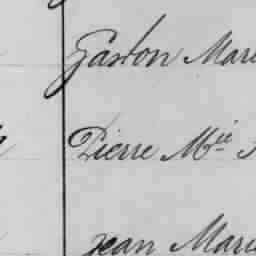 Gaston Mari
Pierre Mie
Jean Mari